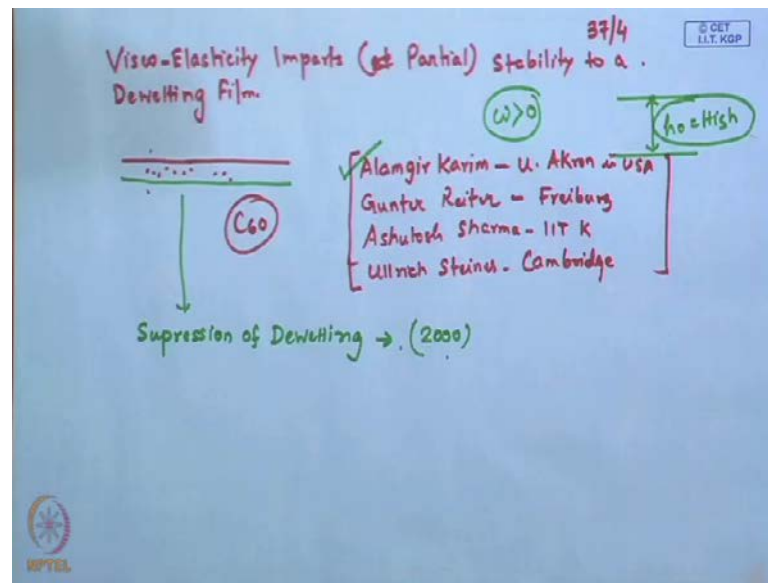 37/4
© CET
I.I.T. KGP
Visco-Elasticity Imparts (Partial) Stability to a.
Dewetting Film.
ω>0
h₀=High
Alamgir Karim - U. Akron in USA
Gunter Reiter - Freiburg
C60
Ashutosh Sharma - IIT K
Ullrich Steiner - Cambridge
Supression of Dewetting → (2000)
NPTEL